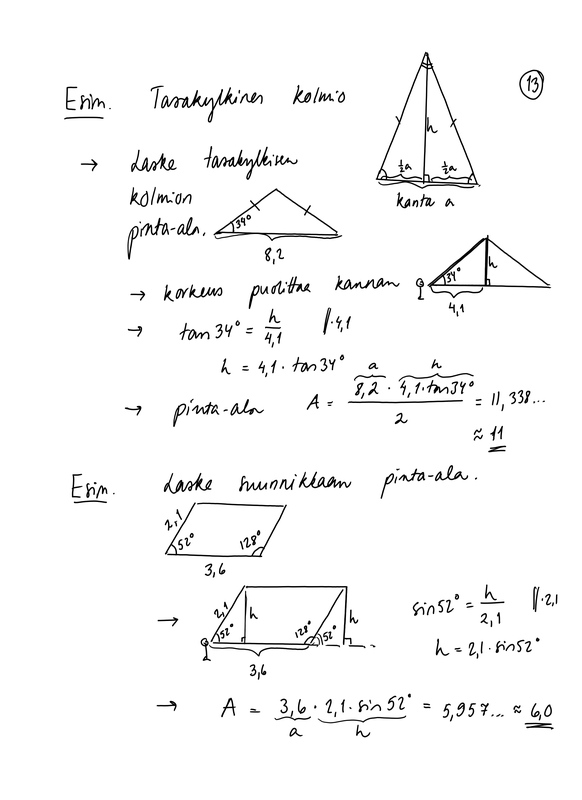 13
Esim. Tasakylkinen kolmio
h
½a ½a
kanta a
→ Laske tasakylkisen
kolmion
pinta-ala.
34°
8,2
→ korkeus puolittaa kannan
34° h
4,1
→ tan 34° = h/4,1 ‖·4,1
h = 4,1 · tan 34°
a h
→ pinta-ala A = (8,2 · 4,1 · tan 34°)/2 = 11,338...
≈ 11
Esim. Laske suunnikkaan pinta-ala.
2,1
52° 128°
3,6
→ 2,1 h h
52° 128° 52°
3,6
sin 52° = h/2,1 ‖·2,1
h = 2,1 · sin 52°
→ A = 3,6 · 2,1 · sin 52° = 5,957... ≈ 6,0
a h